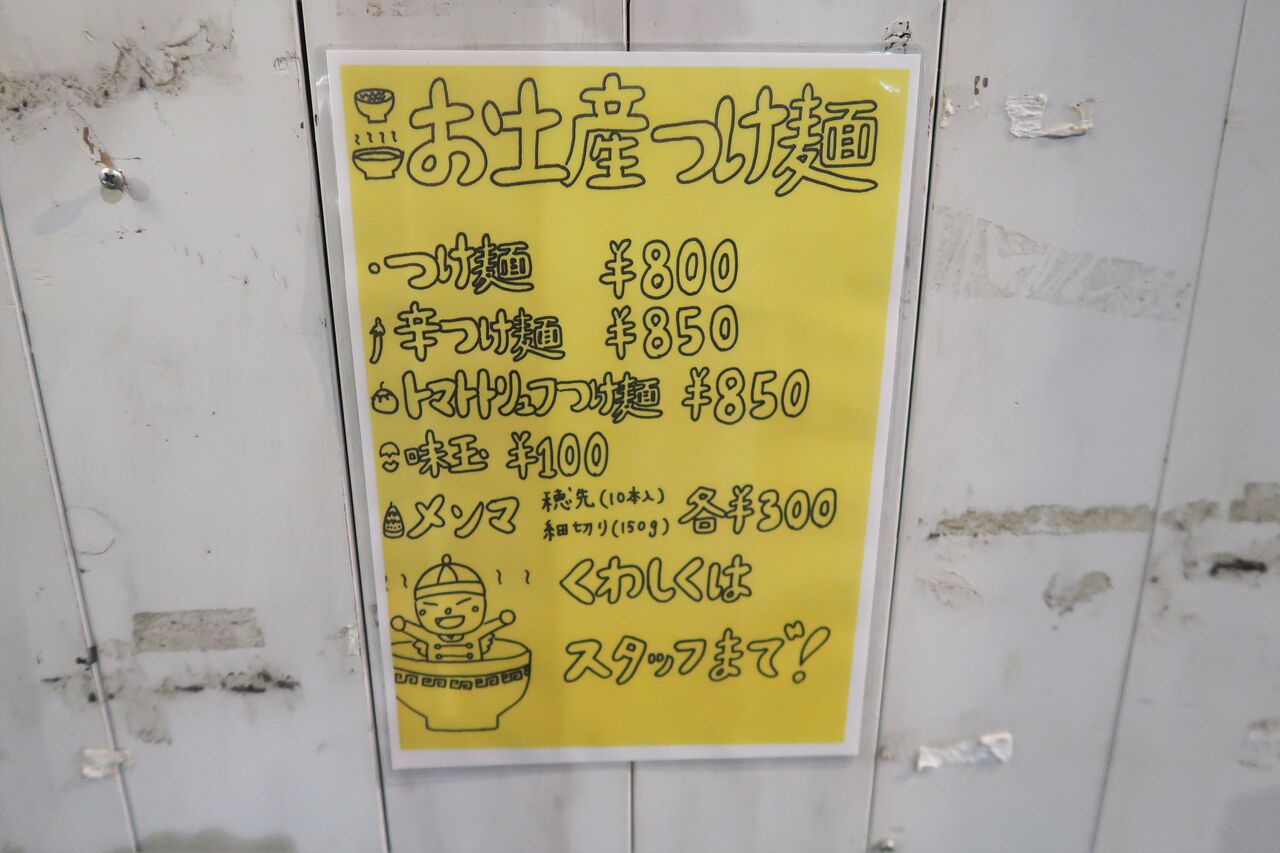 お土産つけ麺
・つけ麺 ¥800
辛つけ麺 ¥850
トマトトリュフつけ麺 ¥850
味玉 ¥100
メンマ 穂先(10本入) 細切り(150g) 各¥300
くわしくは
スタッフまで!